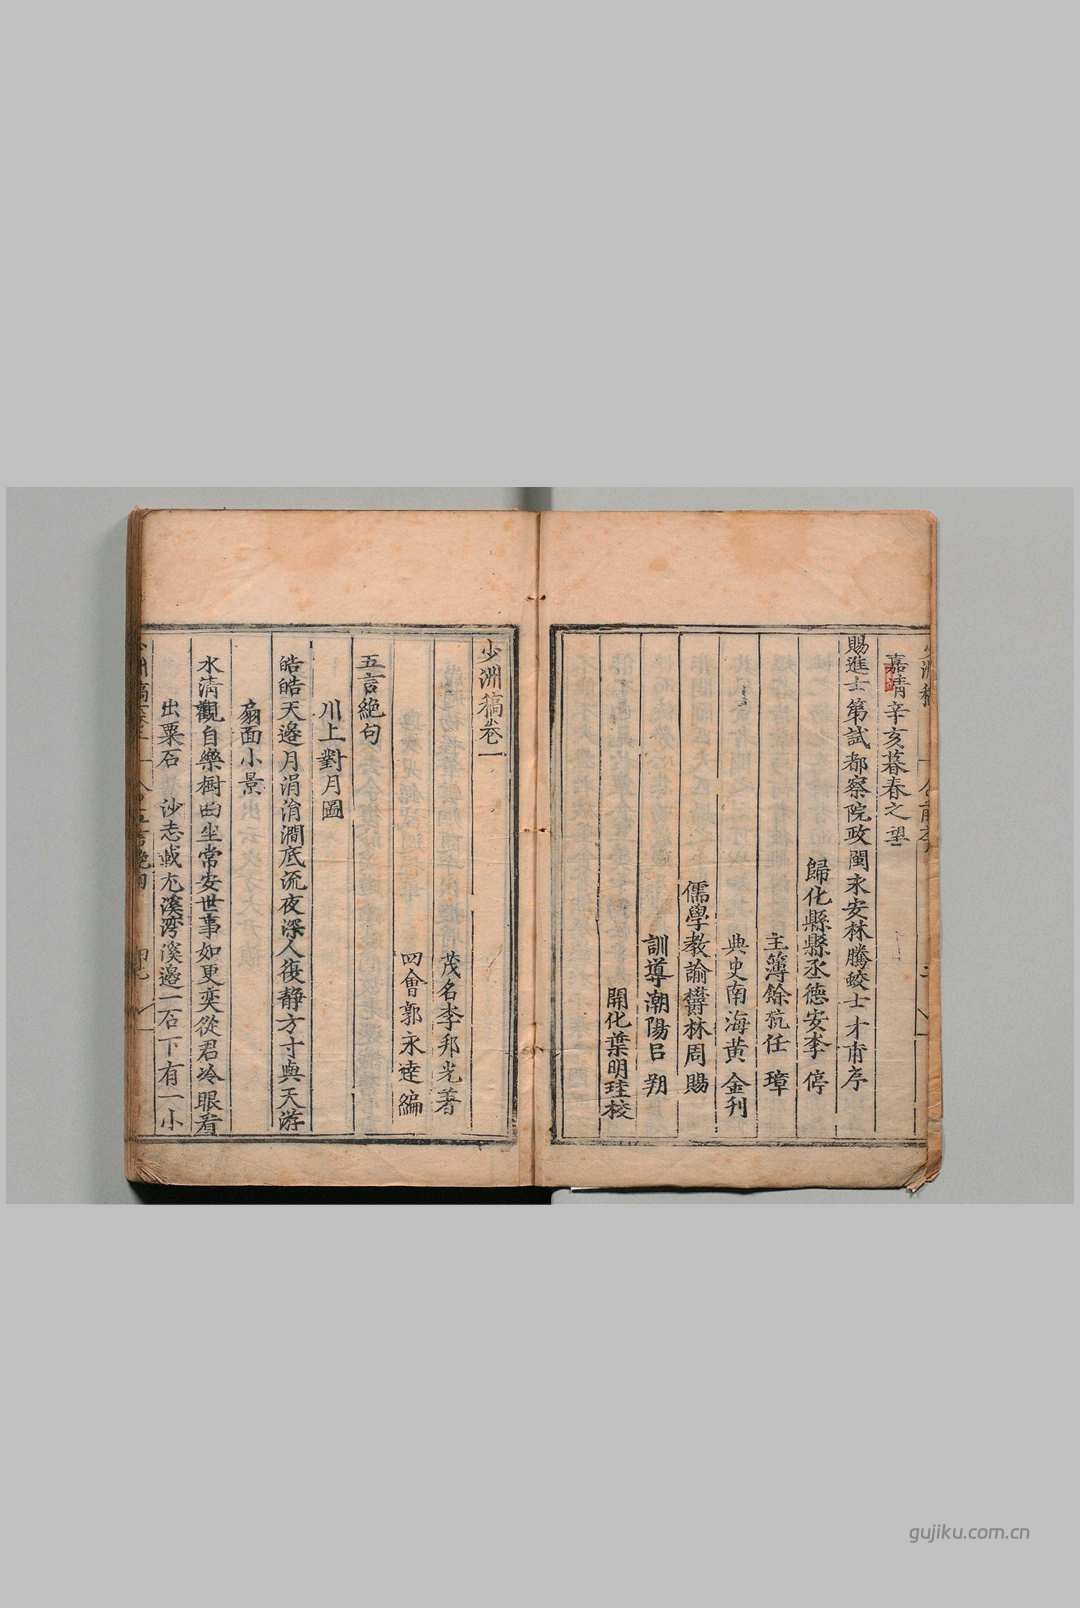 嘉靖辛亥暮春之望
賜進士第試都察院政閩永安林騰蛟士才甫序
歸化縣縣丞德安李 停
主簿餘杭任 璋
典史南海黃 金刊
儒學教諭欝林周 賜
訓導潮陽呂 朔
開化葉明珪校
少洲稿卷一
茂名李邦光著
四會郭永達編
五言絶句
川上對月圖
皓皓天邊月涓涓澗底流夜深人復靜方寸與天游
扇面小景
水清觀自樂樹曲坐常安世事如更奕從君冷眼看
出粟石 沙志載尤溪湾溪邉一石下有一小
gujiku.com.cn